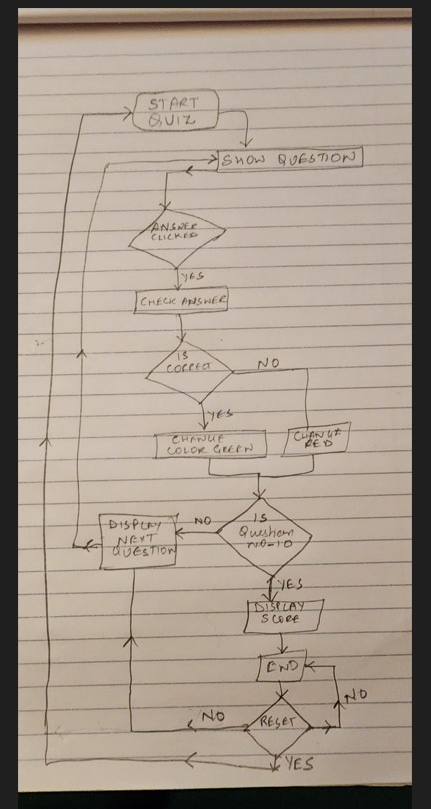 START
QUIZ
SHOW QUESTION
ANSWER
CLICKED
YES
CHECK ANSWER
IS
CORRECT
NO
YES
CHANGE
COLOR GREEN
CHANGE
RED
IS
Question
NO=10
NO
DISPLAY
NEXT
QUESTION
YES
DISPLAY
SCORE
END
NO
RESET
NO
YES